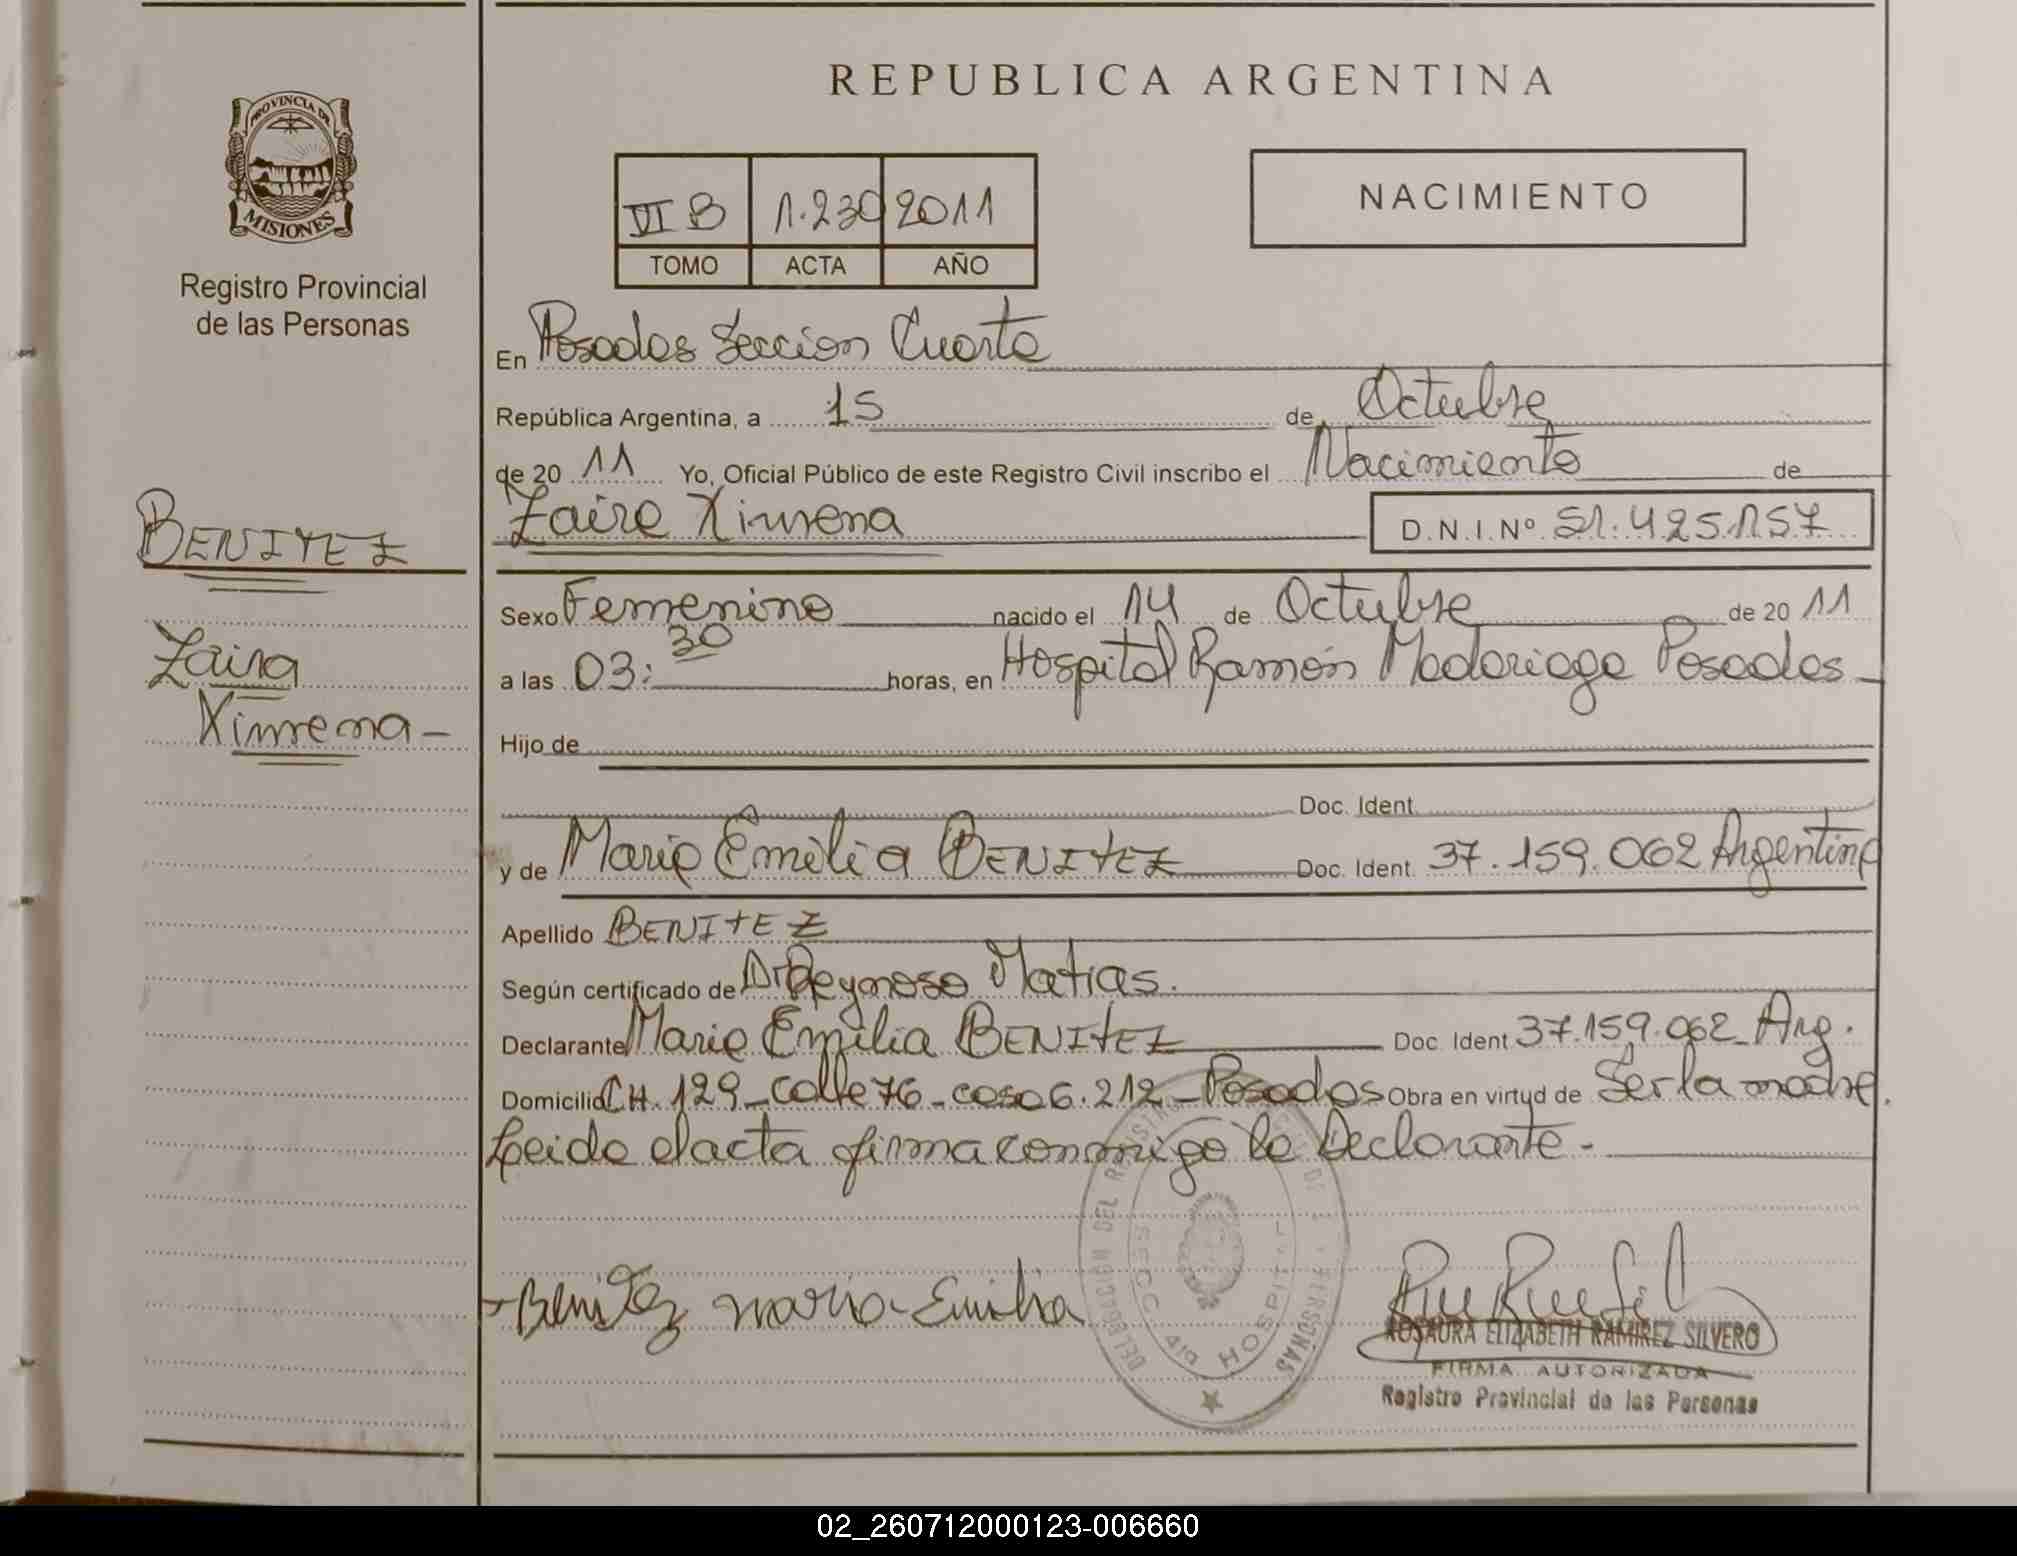 REPUBLICA ARGENTINA
PROVINCIA DE
MISIONES
Registro Provincial
de las Personas
NACIMIENTO
VI B 1.230 2011
TOMO ACTA AÑO
En Posadas Seccion Cuarta
República Argentina, a 15 de Octubre
de 20 11 Yo, Oficial Público de este Registro Civil inscribo el Nacimiento de
Zaira Ximena D.N.I.Nº 51.425.157
BENITEZ
Zaira
Ximena -
Sexo Femenino nacido el 14 de Octubre de 20 11
a las 03:30 horas, en Hospital Ramón Madariaga Posadas
Hijo de
Doc. Ident.
y de Maria Emilia BENITEZ Doc. Ident. 37.159.062 Argentina
Apellido BENITEZ
Según certificado de Dr Reynoso Matias.
Declarante Maria Emilia BENITEZ Doc. Ident 37.159.062 Arg.
Domicilio CH. 129 - calle 76 - casa 6.212 - Posadas Obra en virtud de Ser la madre.
Leida el acta firma conmigo la Declarante.-
DELEGACIÓN DEL
PERSONAS
SECC. 4ta HOSPITAL
Benitez Maria Emilia
ROSAURA ELIZABETH RAMIREZ SILVERO
FIRMA AUTORIZADA
Registro Provincial de las Personas
02_260712000123-006660